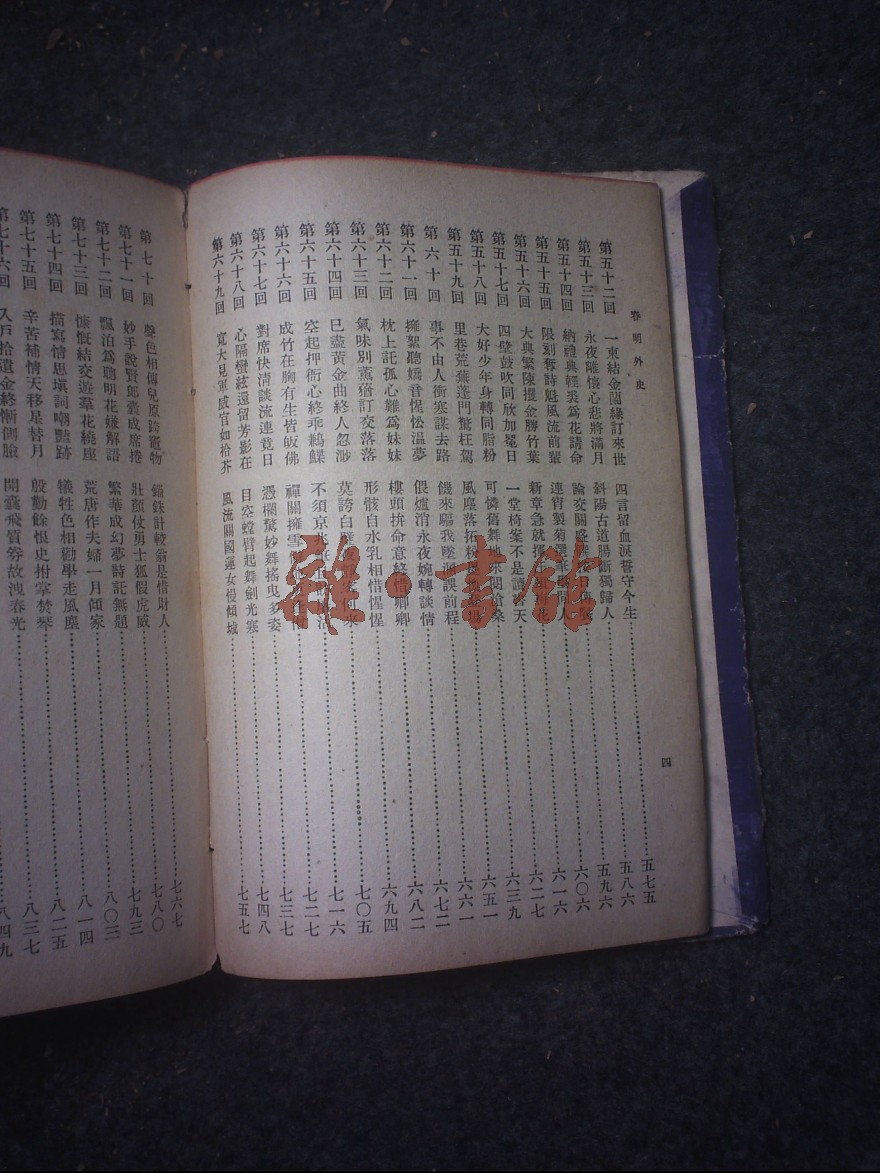 春明外史
第五十二回 一束結金蘭緣訂來世 四言留血淚誓守今生 五七五
第五十三回 永夜離懷心悲將滿月 斜陽古道腸斷獨歸人 五八六
第五十四回 納禮典輕裘爲花請命 論交關 五九六
第五十五回 限刻奪詩魁風流前輩 連宵製菊選 人 六〇六
第五十六回 大典繁陳摸金勝竹葉 新章急就 花 六一六
第五十七回 四壁鼓吹同欣加冕日 一堂椅案不是讀書天 六二七
第五十八回 大好少年身轉同脂粉 可憐舊舞地來閱滄桑 六三九
第五十九回 里巷荒蕪蓬門驚枉駕 風塵落拓粉 六五一
第六十回 事不由人衝寒謀去路 饑來驅我墜溷誤前程 六六一
第六十一回 擁絮聽嬌音惺忪溫夢 偎爐消永夜婉轉談情 六七二
第六十二回 枕上託孤心難爲妹妹 樓頭拚命意終惜卿卿 六八二
第六十三回 氣味別薰蕕訂交落落 形骸自水乳相惜惺惺 六九四
第六十四回 已盡黃金曲終人忽渺 莫誇白璧 來 七〇五
第六十五回 空起押衙心終乖鶼鰈 不須京兆 七一六
第六十六回 成竹在胸有生皆皈佛 禪關擁雪 七二七
第六十七回 對席快清談流連竟日 憑欄驚妙舞搖曳多姿 七三七
第六十八回 心隔蠻絃還留芳影在 目空螳臂起舞劍光寒 七四八
第六十九回 寬大見軍威官如拾芥 風流關國運女慢傾城 七五七
四
第七十回 聲色相傳兒原跨竈物 錙銖計較翁是惜財人 七六七
第七十一回 妙手說賢郎囊成席捲 壯顏仗勇士狐假虎威 七八〇
第七十二回 飄泊爲聰明花嫌解語 繁華成幻夢詩託無題 七九三
第七十三回 慷慨結交遊羣花繞座 荒唐作夫婦一月傾家 八〇三
第七十四回 描寫情思塡詞嘲豔跡 犧牲色相勸學走風塵 八一四
第七十五回 辛苦補情天移星替月 殷勤餘恨史拊掌焚琴 八二五
第七十六回 入戶拾遺金終慚側臉 開囊飛質券故洩春光 八三七
八四九
雜·書館